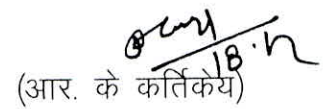 18.12
(आर. के कर्तिकेय)